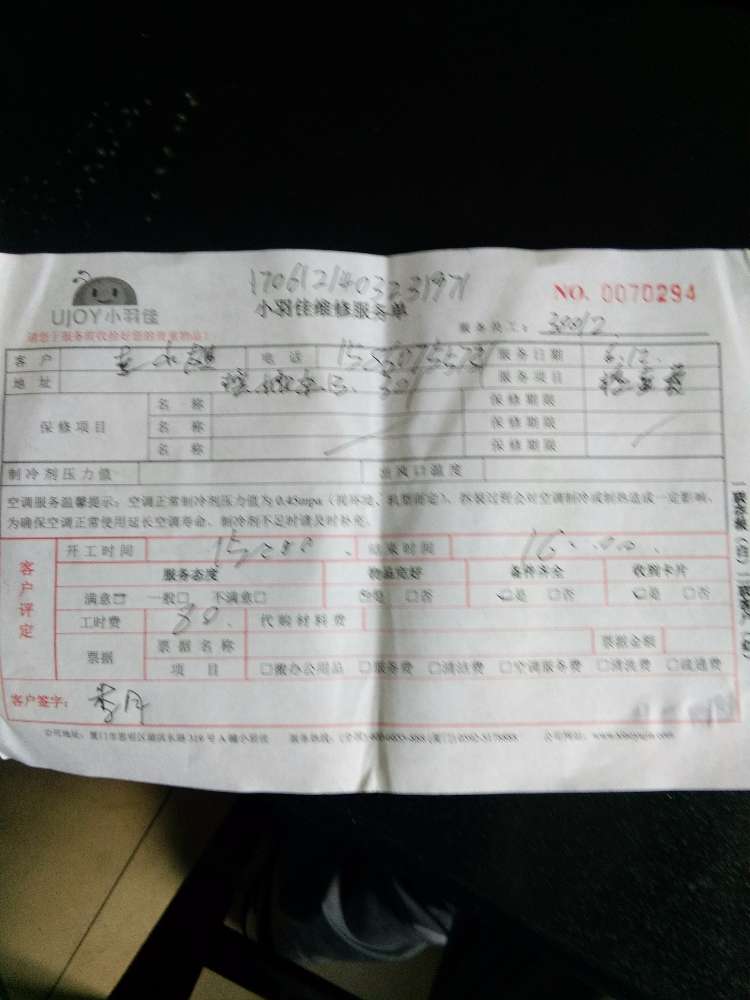 170612140323197
UJOY小羽佳
小羽佳维修服务单
NO. 0070294
请您于服务前收拾好您的贵重物品!
服务员工: 30012
客户 电话 服务日期 6.12.
地址 服务项目
保修项目 名称 保修期限
名称 保修期限
名称 保修期限
制冷剂压力值 出风口温度
空调服务温馨提示:空调正常制冷剂压力值为0.45mpa(视环境、机型而定),拆装过程会对空调制冷或制热造成一定影响,
为确保空调正常使用延长空调寿命,制冷剂不足时请及时补充。
客户评定
开工时间 15:00 结束时间 16:00
服务态度 物品完好 备件齐全 收到卡片
满意□ 一般□ 不满意□ □是 □否 □是 □否 □是 □否
工时费 80 代购材料费
票据 票据名称 票据金额
项目 □搬办公用品 □服务费 □清洁费 □空调服务费 □清洗费 □疏通费
客户签字: 李月
公司地址:厦门市思明区湖滨长路319号A幢小羽佳 服务热线: 公司网址: